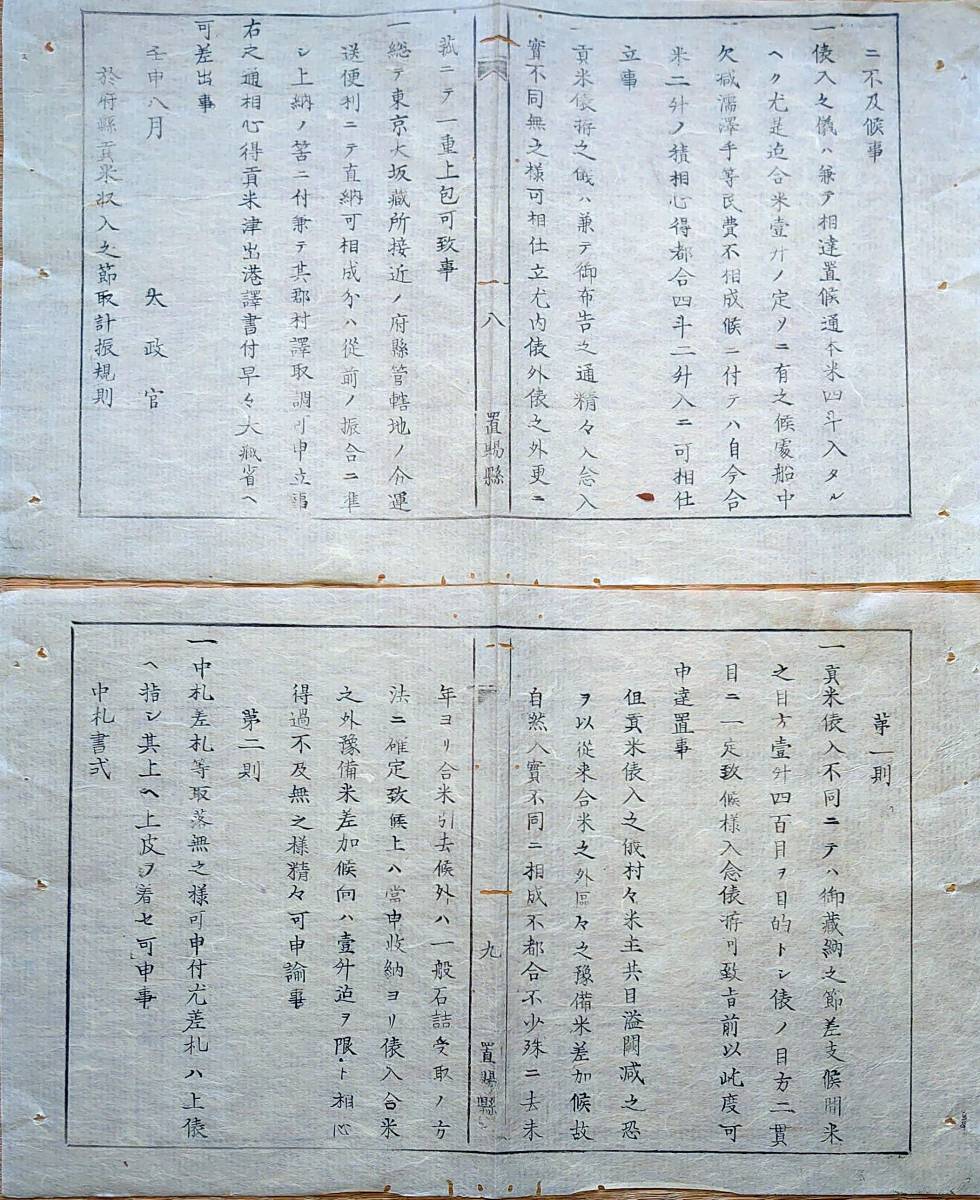 ニ不及候事
一俵入之儀ハ兼テ相達置候通本米四斗入タル
ヘク尤是迠合米壹升ノ定ソニ有之候處船中
欠減濡澤手等民費不相成候ニ付テハ自今合
米二升ノ積相心得都合四斗二升入ニ可相仕
立事
貢米俵拵之儀ハ兼テ御布告之通精々入念入
實不同無之様可相仕立尤内俵外俵之外更ニ
八
置賜縣
菰ニテ一重上包可致事
一総テ東京大坂藏所接近ノ府縣管轄地ノ分運
送便利ニテ直納可相成分ハ從前ノ振合ニ準
シ上納ノ筈ニ付兼テ其郡村譯取調可申立事
右之通相心得貢米津出港譯書付早々大藏省ヘ
可差出事
壬申八月
太政官
於府縣貢米収入之節取計振規則
第一則
一貢米俵入不同ニテハ御藏納之節差支候間米
之目方壹升四百目ヲ目的トシ俵ノ目方二貫
目ニ一定致候様入念俵拵可致旨前以此度可
申達置事
但貢米俵入之儀村々米主共目溢闕减之恐
ヲ以從来合米之外區々之豫備米差加候故
自然入實不同ニ相成不都合不少殊ニ去未
九
置賜縣
年ヨリ合米引去候外ハ一般石詰受取ノ方
法ニ確定致候上ハ當申收納ヨリ俵入合米
之外豫備米差加候向ハ壹升迠ヲ限ト相心
得過不及無之様精々可申諭事
第二則
一中札差札等取落無之様可申付尤差札ハ上俵
ヘ指シ其上ヘ上皮ヲ着セ可申事
中札書式